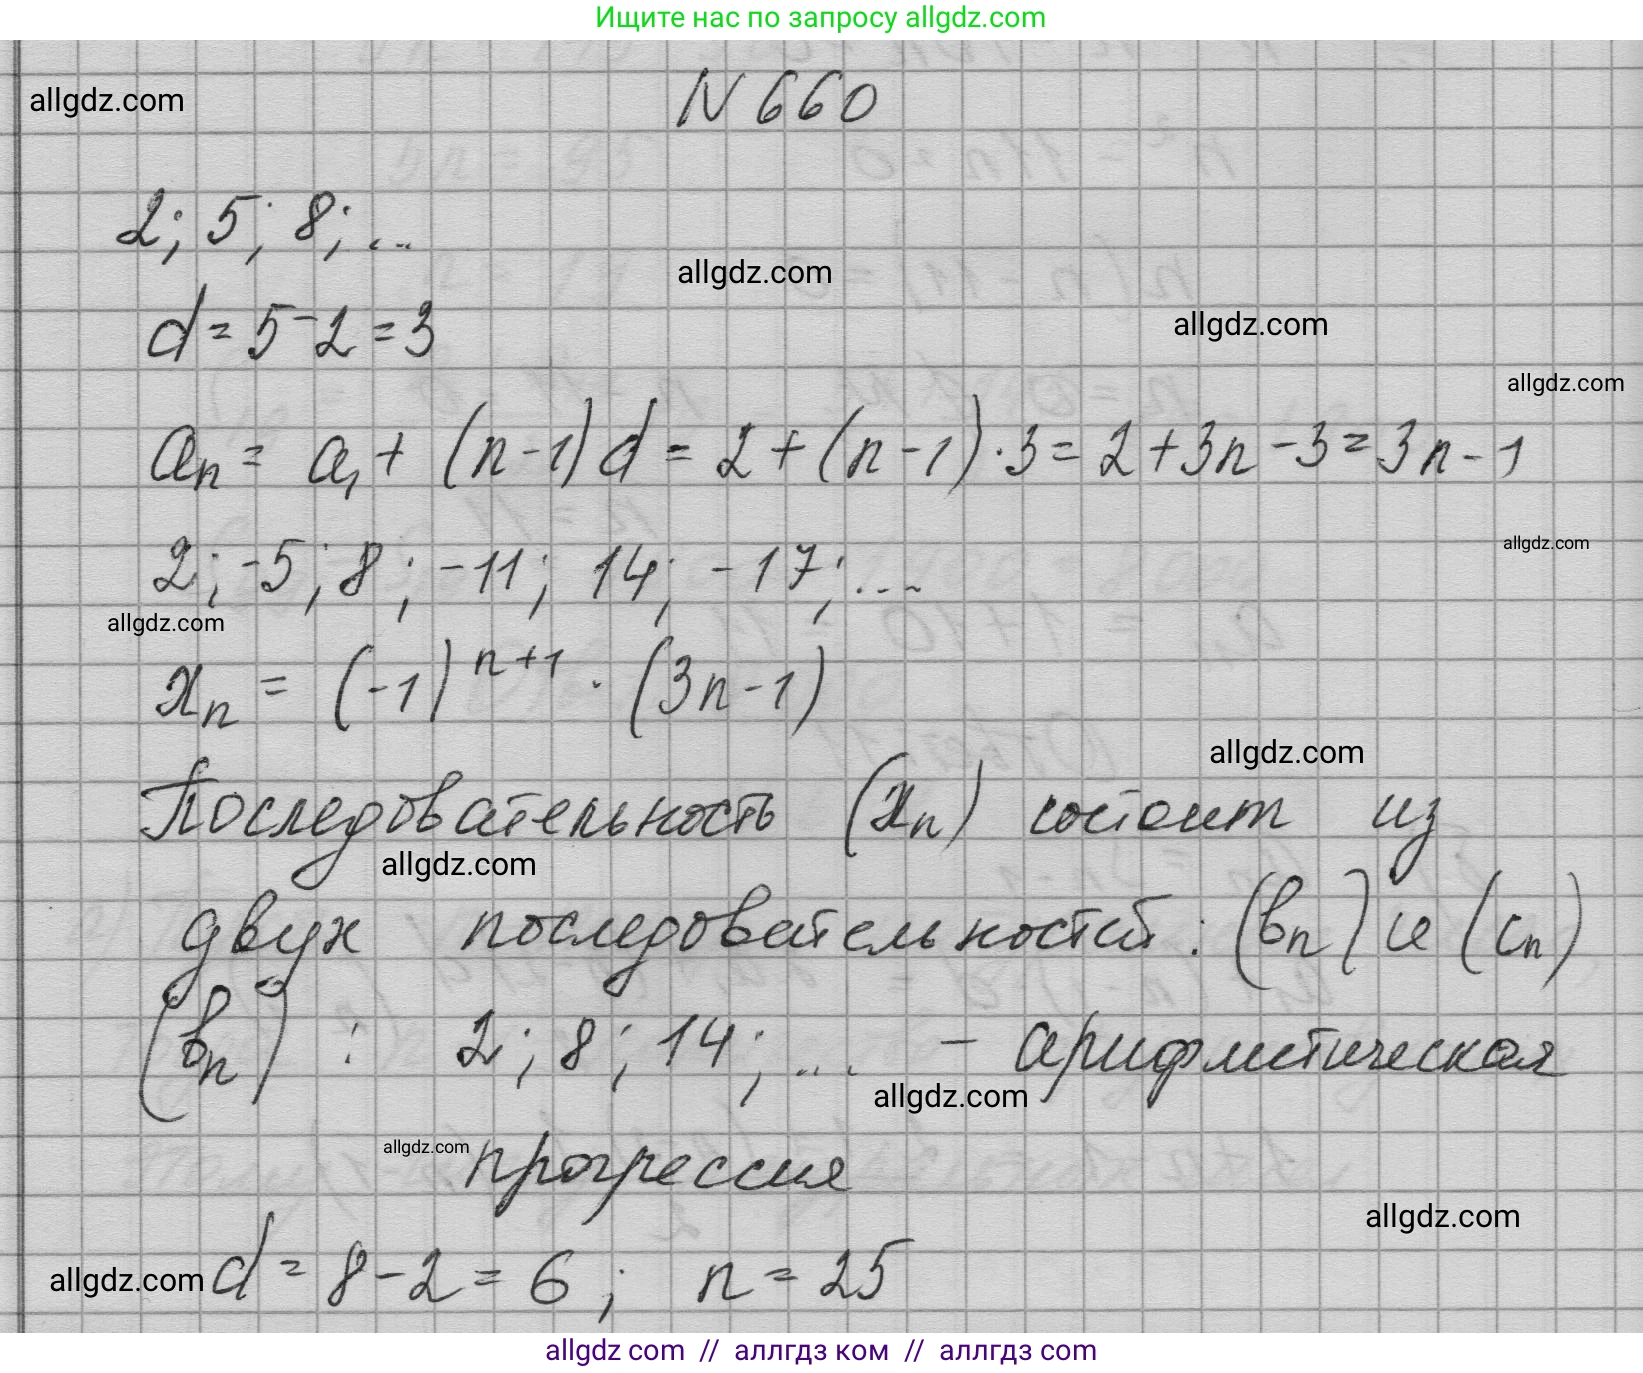 Ищите нас по запросу allgdz.com
allgdz.com
N 660
2; 5; 8; ...
allgdz.com
d = 5 - 2 = 3
allgdz.com
allgdz.com
aₙ = a₁ + (n-1)d = 2 + (n-1)·3 = 2 + 3n - 3 = 3n - 1
2; -5; 8; -11; 14; -17; ...
allgdz.com
allgdz.com
xₙ = (-1)ⁿ⁺¹ · (3n-1)
allgdz.com
Последовательность (xₙ) состоит из
allgdz.com
двух последовательностей: (bₙ) и (cₙ)
(bₙ) : 2; 8; 14; ... - арифметическая
allgdz.com
allgdz.com
прогрессия
allgdz.com
allgdz.com
d = 8 - 2 = 6; n = 25
allgdz com // аллгдз ком // аллгдз com